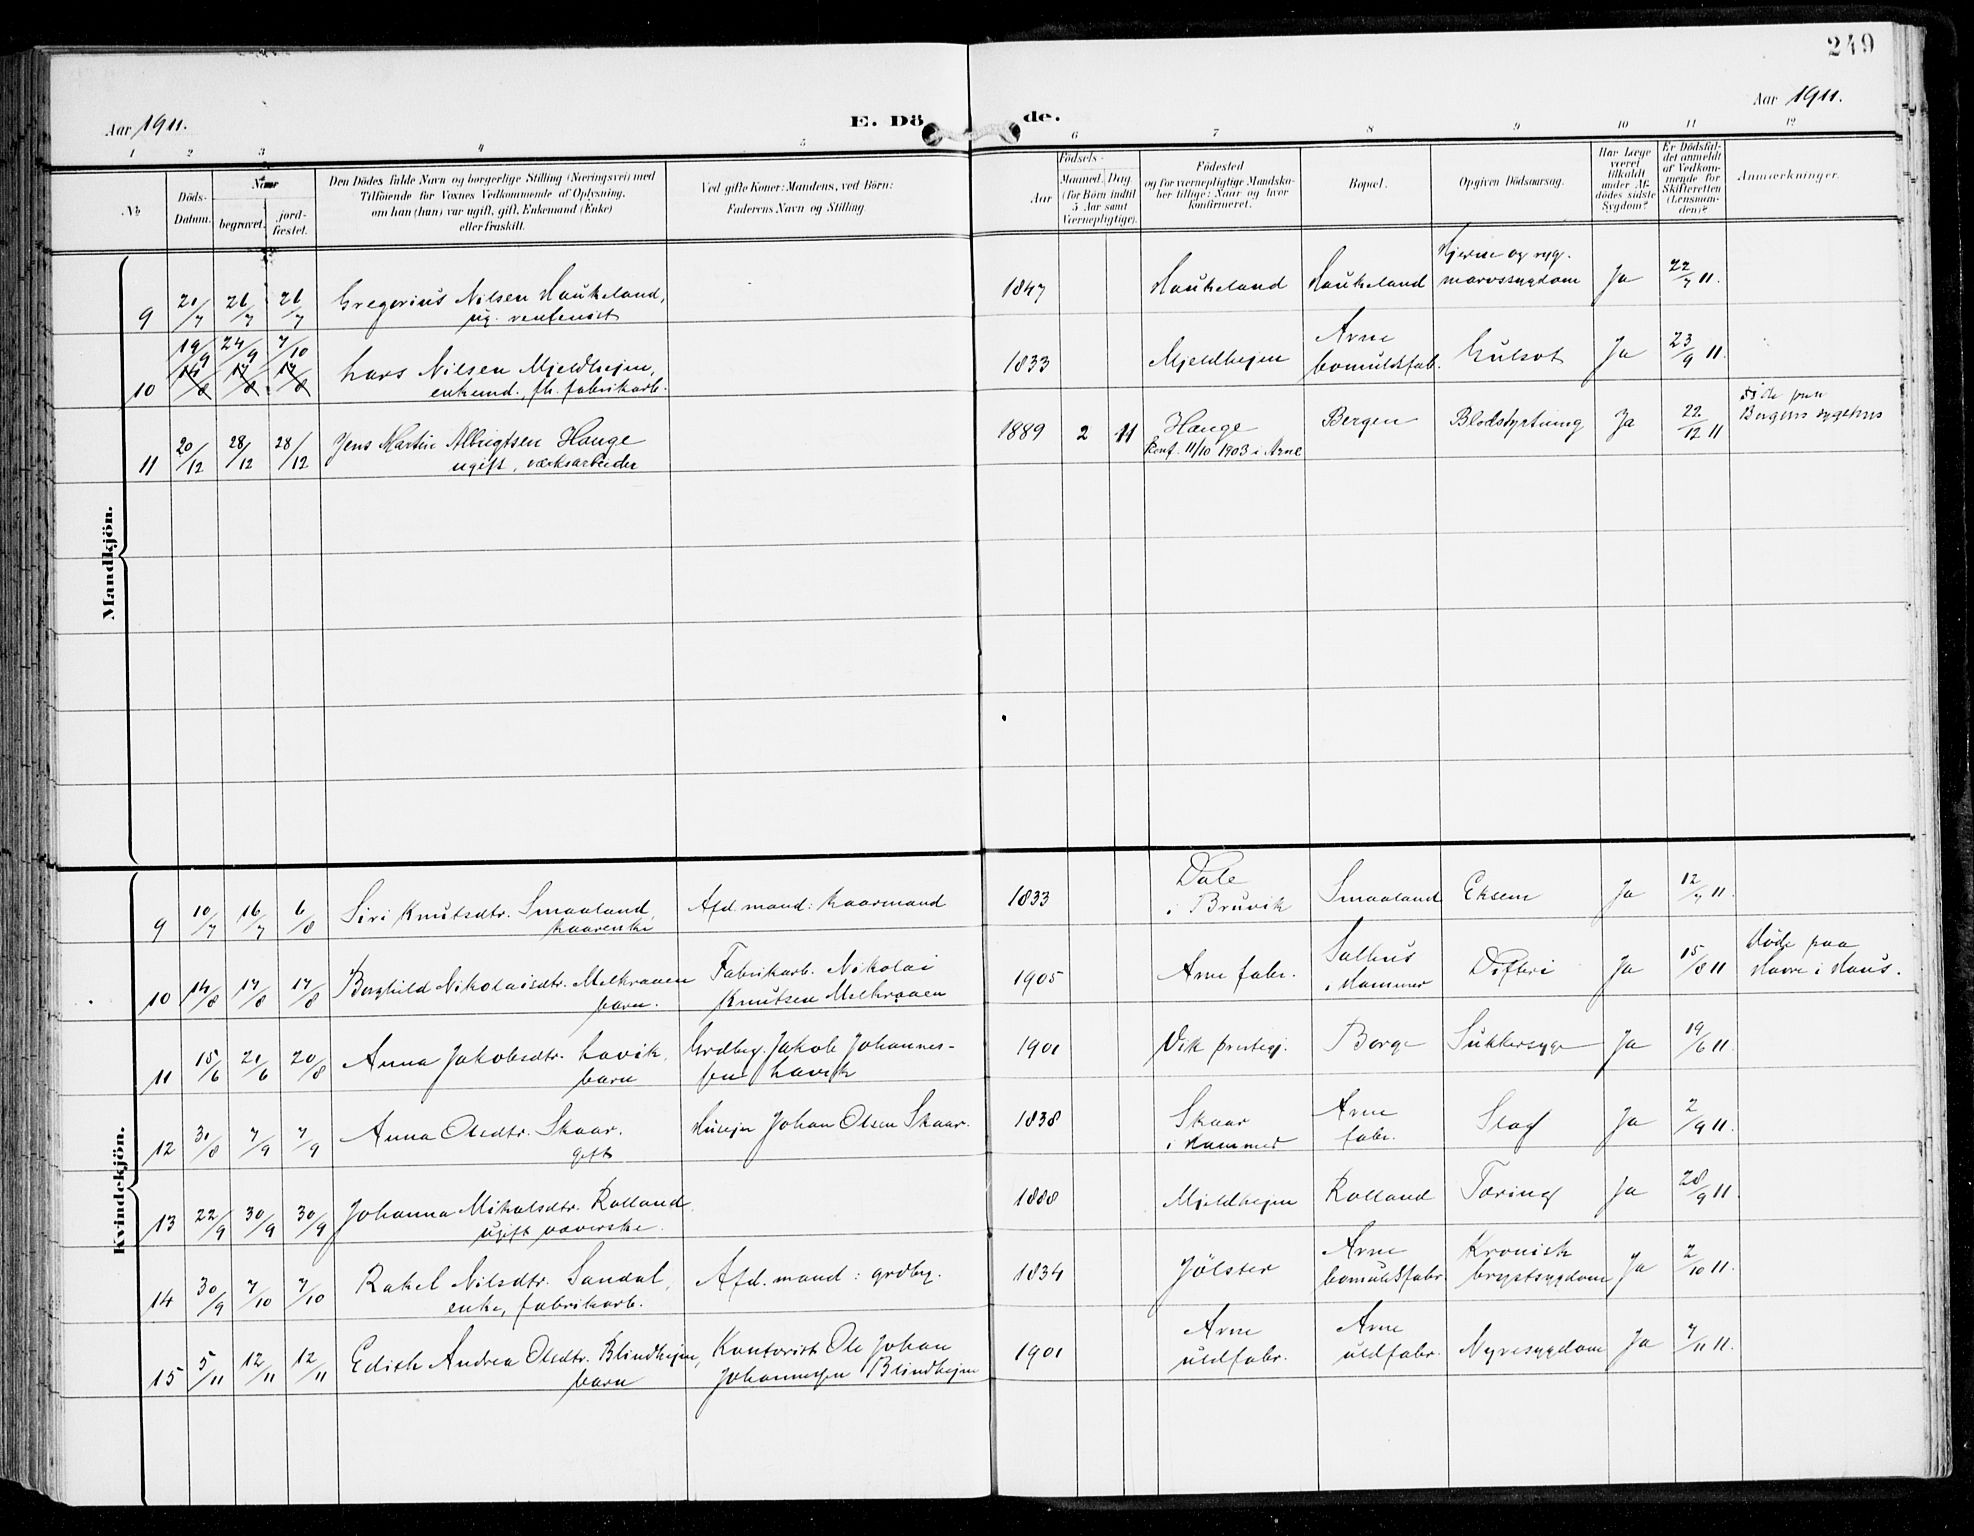 249
Aar 1911.
E. Döde.
Aar 1911.
1 2 3 4 5 6 7 8 9 10 11 12
№
Döds-Datum.
Naar
begravet.
jord-fæstet.
Den Dödes fulde Navn og borgerlige Stilling (Næringsvei) med
Tilföiende for Voxnes Vedkommende af Oplysning,
om han (hun) var ugift, gift, Enkemand (Enke)
eller fraskilt.
Ved gifte Koner: Mandens, ved Börn:
Faderens Navn og Stilling.
Födsels-
Aar
Maaned. Dag
(for Börn indtil
5 Aar samt
Værnepligtige).
Födested
og for værnepligtige Mandska-
ber tillige: Naar og hvor
konfirmeret.
Bopæl.
Opgiven Dödsaarsag.
Har Læge
været
tilkaldt
under Af-
dödes sidste
Sygdom?
Er Dödsfal-
det anmeldt
af Vedkom-
mende for
Skifteretten
(Lensman-
den)?
Anmærkninger.
Mandkjön.
9 21/7 26/7 26/7 Gregorius Nilsen Haukeland, 1847 Haukeland Haukeland Hjerne og ryg-
marvssygdom Ja 22/7 11.
10 19/9 24/9 7/10 Lars Nilsen Mjeldhejen, 1833 Mjeldhejen Arne
14/8 17/8 17/8 enkemd., fh. fabrikarb. bomuldsfab. Gulsot Ja 23/9 11.
11 20/12 28/12 28/12 Jens Martin Albrigtsen Hauge 1889 2 11 Hauge Bergen Blodstyrtning Ja 22/12 11 Döde paa
ugift, værksarbeider konf. 11/10 1903 i Arne Bergens sygehus
Kvindekjön.
9 10/7 16/7 6/8 Siri Knutsdtr. Smaaland, Afd. mand: kaarmand 1833 Dale Smaaland Eksem Ja 12/7 11.
kaarenke i Bruvik
10 14/8 17/8 17/8 Borghild Nikolaisdtr. Melkraaen Fabrikarb. Nikolai 1905 Arne fabr. Salhus Difteri Ja 15/8 11 Döde paa
barn. Knutsen Melkraaen i Hammer Havre i Haus.
11 15/6 21/6 20/8 Anna Jakobsdtr. Lavik, Grdbrg. Jakob Johannes- 1901 Vik prestegj. Borge Sukkersyge Ja 19/6 11.
barn sen Lavik
12 31/8 7/9 7/9 Anna Olsdtr. Skaar. Husejer Johan Olsen Skaar. 1838 Skaar Arne Slag Ja 2/9 11.
gift i Hammer fabr.
13 22/9 30/9 30/9 Johanna Mikalsdtr. Rolland, 1888 Mjeldhejen Rolland Tæring Ja 28/9 11.
ugift væverske.
14 30/9 7/10 7/10 Rakel Nilsdtr. Sandal, Afd. mand: grdbrg. 1834 Jölster Arne Kronisk Ja 2/10 11.
enke, fabrikarb. bomuldsfabr. brystsygdom
15 5/11 12/11 12/11 Edith Andrea Olsdtr. Blindhejen, Kontorist Ole Johan 1901 Arne Arne Nyresygdom Ja 7/11 11.
barn Johannessen Blindhejen uldfabr. uldfabr.